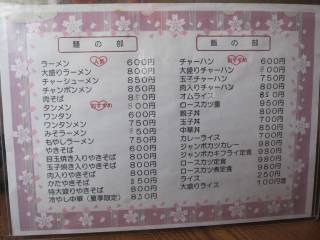 麺の部
ラーメン 人気 600円
大盛りラーメン 800円
チャーシューメン 850円
チャンポンメン 850円
肉そば 850円
タンメン おすすめ 800円
ワンタン 600円
ワンタンメン 750円
みそラーメン 750円
もやしラーメン 750円
やきそば 600円
目玉焼き入りやきそば 800円
玉子焼き入りやきそば 800円
肉入りやきそば 800円
かたやきそば 850円
特大盛りやきそば 800円
冷やし中華(夏季限定) 850円
飯の部
チャーハン おすすめ 600円
大盛りチャーハン 800円
玉子チャーハン 750円
肉入りチャーハン 800円
オムライス 850円
ロースカツ重 950円
親子丼 800円
玉子丼 700円
中華丼 850円
カレーライス 700円
ジャンボカツカレー 980円
ジャンボカキフライ定食 980円
ロースカツ定食 980円
ロース煮定食 980円
ライス 250円
大盛りライス 100円増